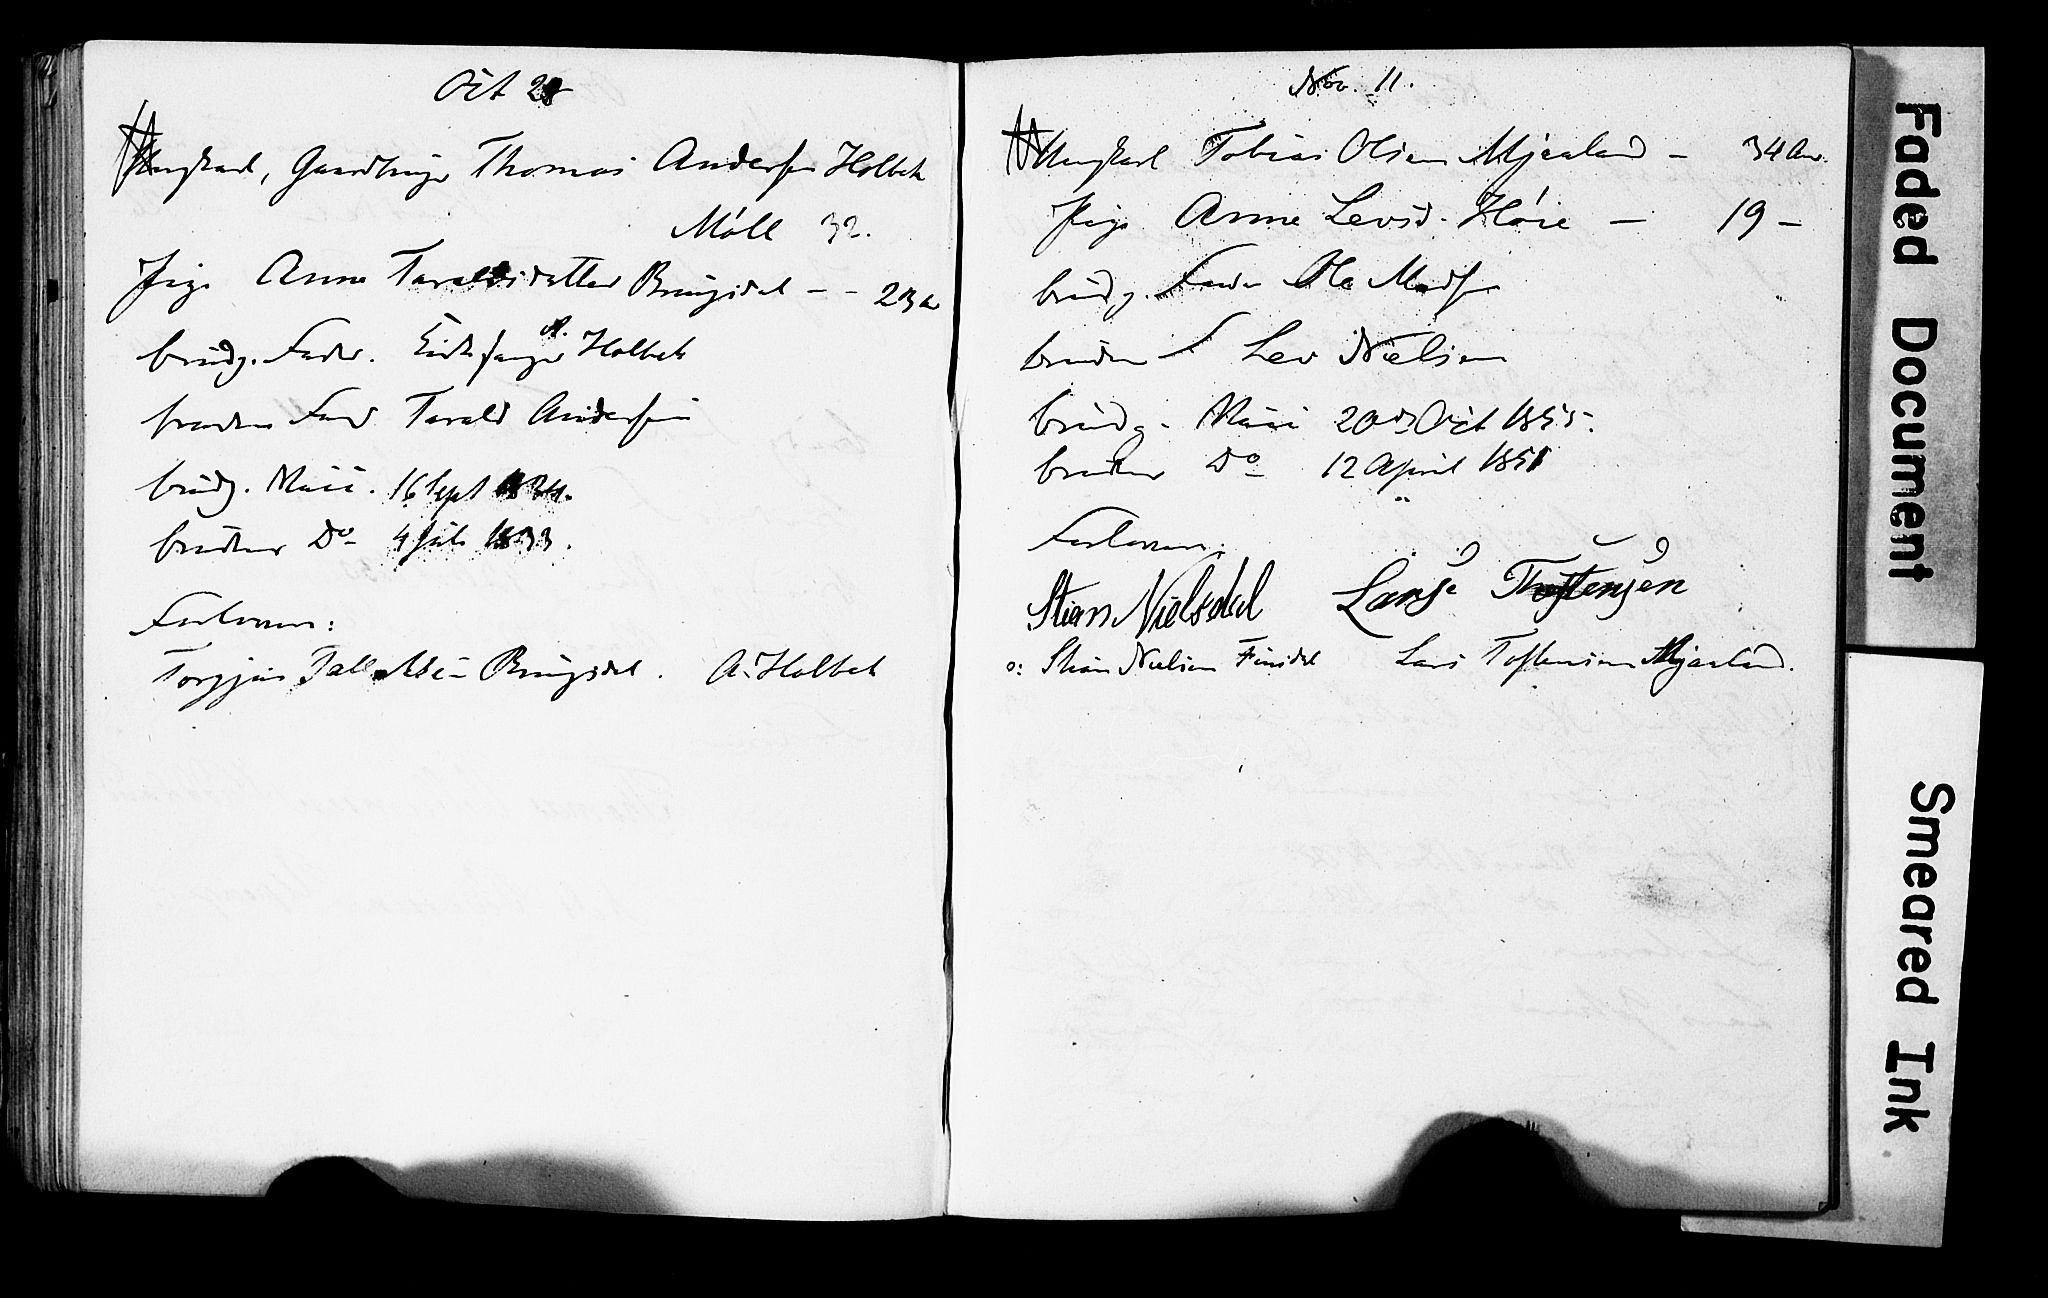 Oct 28
Ungkarl, Gaardbruger Thomas Andersen Holbek
Møll 32.
Pige Anne Taraldsdatter Bringsdal - - 23 a
brudg. Fader. A. Holbek
brudens Fad Tarald Andersen
brudg. Vacc. 16 Sept 1834.
brudens Do 4 Juli 1833.
Forlovere:
Bringsdal. A. Holbek
Nov. 11.
Ungkarl Tobias Olsen Mjaaland - 34 Aar.
Pige Anne Levsd. Høie - 19 -
brudg. Fader Ole Madsen
bruden F Lev Nielsen
brudg. Vacc 20de Oct 1855.
bruden Do 12 April 1851
Forlovere:
Stian Nielsdal Larsş Thostensen
o: Stian Nielsen Finsdal Lars Tostensen Mjaaland.
Faded Document
Smeared Ink